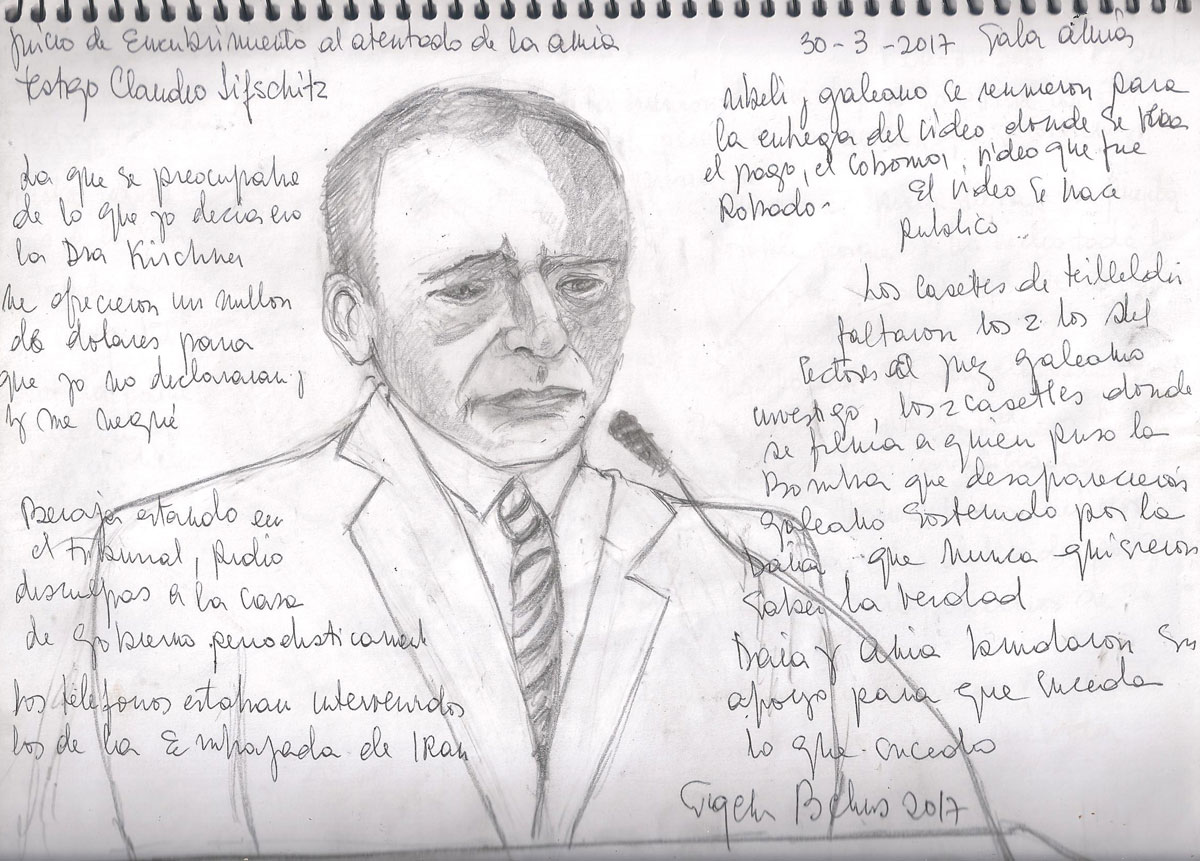 juicio de Encubrimiento al atentado de la amia
testigo Claudio Lifschitz
30-3-2017 Sala AMIA
La que se preocupaba
de lo que yo declarero
la Dra Kirchner
me ofrecieron un millon
de dolares para
que yo no declararan y
y me negué
Beraja estando en
el tribunal, pidio
disculpas a la casa
de gobierno periodisticament
los teléfonos estaban intervenidos
los de la Embajada de Iran
Ribeli y galeano se reunieron para
la entrega del video donde se
el pago, el coborno, video que fue
Robado-
El video se hace
publico ..
Los casetes de telleldin
faltaron los 2 los del
al juez galeano
investigo, los 2 casettes donde
se tenia a quien puso la
Bomba que desaparecieron
galeano sostenido por la
Daia, que nunca quisieron
saber la verdad
Daia y Amia brindaron su
apoyo para que suceda
lo que sucedio
2017